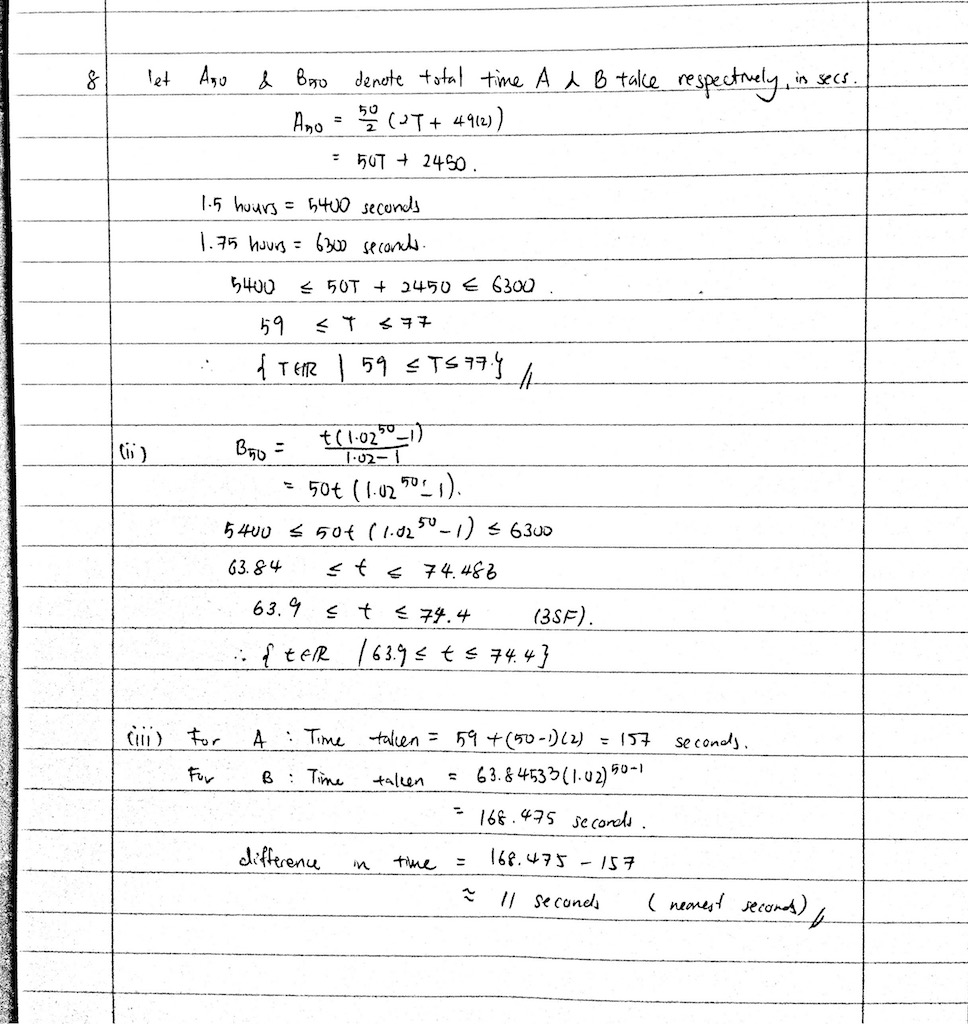 8 let A50 & B50 denote total time A & B take respectively, in secs.
A50 = 50/2 (2T + 49(2))
= 50T + 2450.
1.5 hours = 5400 seconds
1.75 hours = 6300 seconds.
5400 ≤ 50T + 2450 ≤ 6300.
59 ≤ T ≤ 77
∴ { T ∈ ℝ | 59 ≤ T ≤ 77 } //
(ii) B50 = t(1.02^50 - 1) / 1.02 - 1
= 50t (1.02^50 - 1).
5400 ≤ 50t (1.02^50 - 1) ≤ 6300
63.84 ≤ t ≤ 74.486
63.9 ≤ t ≤ 74.4 (3SF).
∴ { t ∈ ℝ / 63.9 ≤ t ≤ 74.4 }
(iii) For A : Time taken = 59 + (50-1)(2) = 157 seconds.
For B : Time taken = 63.84533 (1.02)^50-1
= 168.475 seconds.
difference in time = 168.475 - 157
≈ 11 seconds (nearest seconds) //